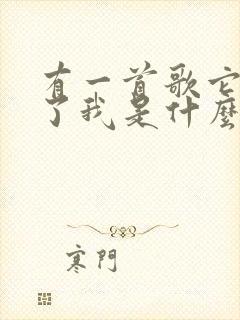 有一首歌它
了我是什麼
寒門